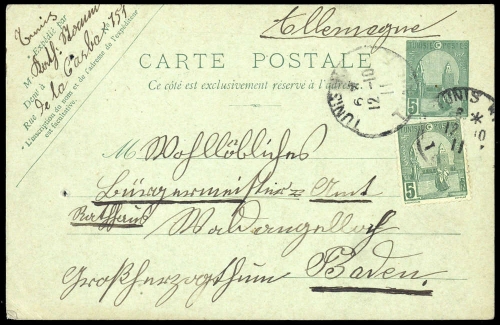 Allemagne
Tunis
Expédié par
M
Dté à
Rue de la Casba Nº 151
L'inscription du nom et de l'adresse de l'expéditeur
est facultative.
CARTE POSTALE
Ce côté est exclusivement réservé à l'adresse
TUNISIE
5
TUNIS
6
12-10
11
TUNIS
12
10
11
5
M Wohllöbliches
Bürgermeister-Amt
Rathhaus
Waldangelloch
Großherzogthum Baden